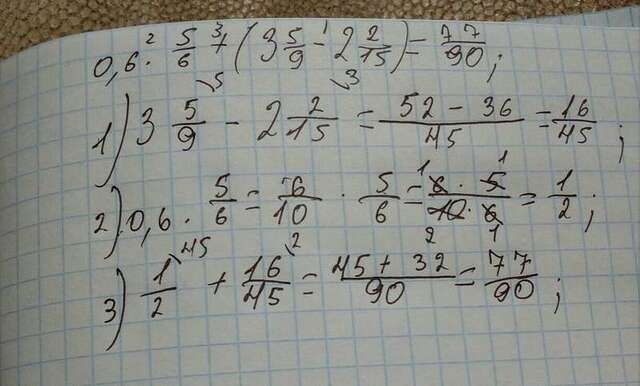 0,6 · 5/6 + (3 5/9 - 2 2/15) = 77/90;
1) 3 5/9 - 2 2/15 = (52 - 36)/45 = 16/45;
2) 0,6 · 5/6 = 6/10 · 5/6 = (6 · 5)/(10 · 6) = 1/2;
3) 1/2 + 16/45 = (45 + 32)/90 = 77/90;